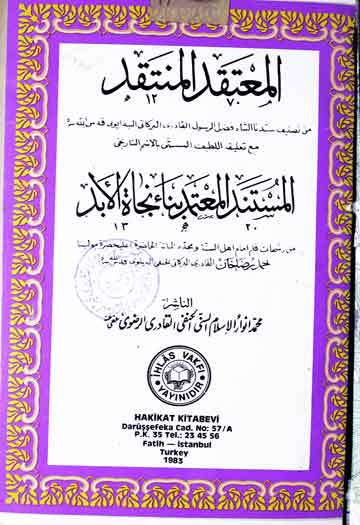 المعتقد المنتقد
١٢ ٧٠
من تصنيف سيدنا الشاه فضل الرسول القادري البركاتي البدايوني قدس سره
مع تعليقه اللطيف المسمى بالاسم التاريخي
المستند المعتمد بناء نجاة الأبد
١٣ ه ٢٠
من رشحات قلم امام اهل السنة ومجدد المائة الحاضرة اعليحضرة مولينا
احمد رضا خان القادري البركاتي الحنفي البريلوي قدس سره
الناشر
محمد انوار الاسلام السني الحنفي القادري الرضوي عفي عنه
IHLÂS VAKFI
YAYINIDIR
HAKİKAT KİTABEVİ
Darüşşefeka Cad. No: 57/A
P.K. 35 Tel.: 23 45 56
Fatih — İstanbul
Turkey
1983